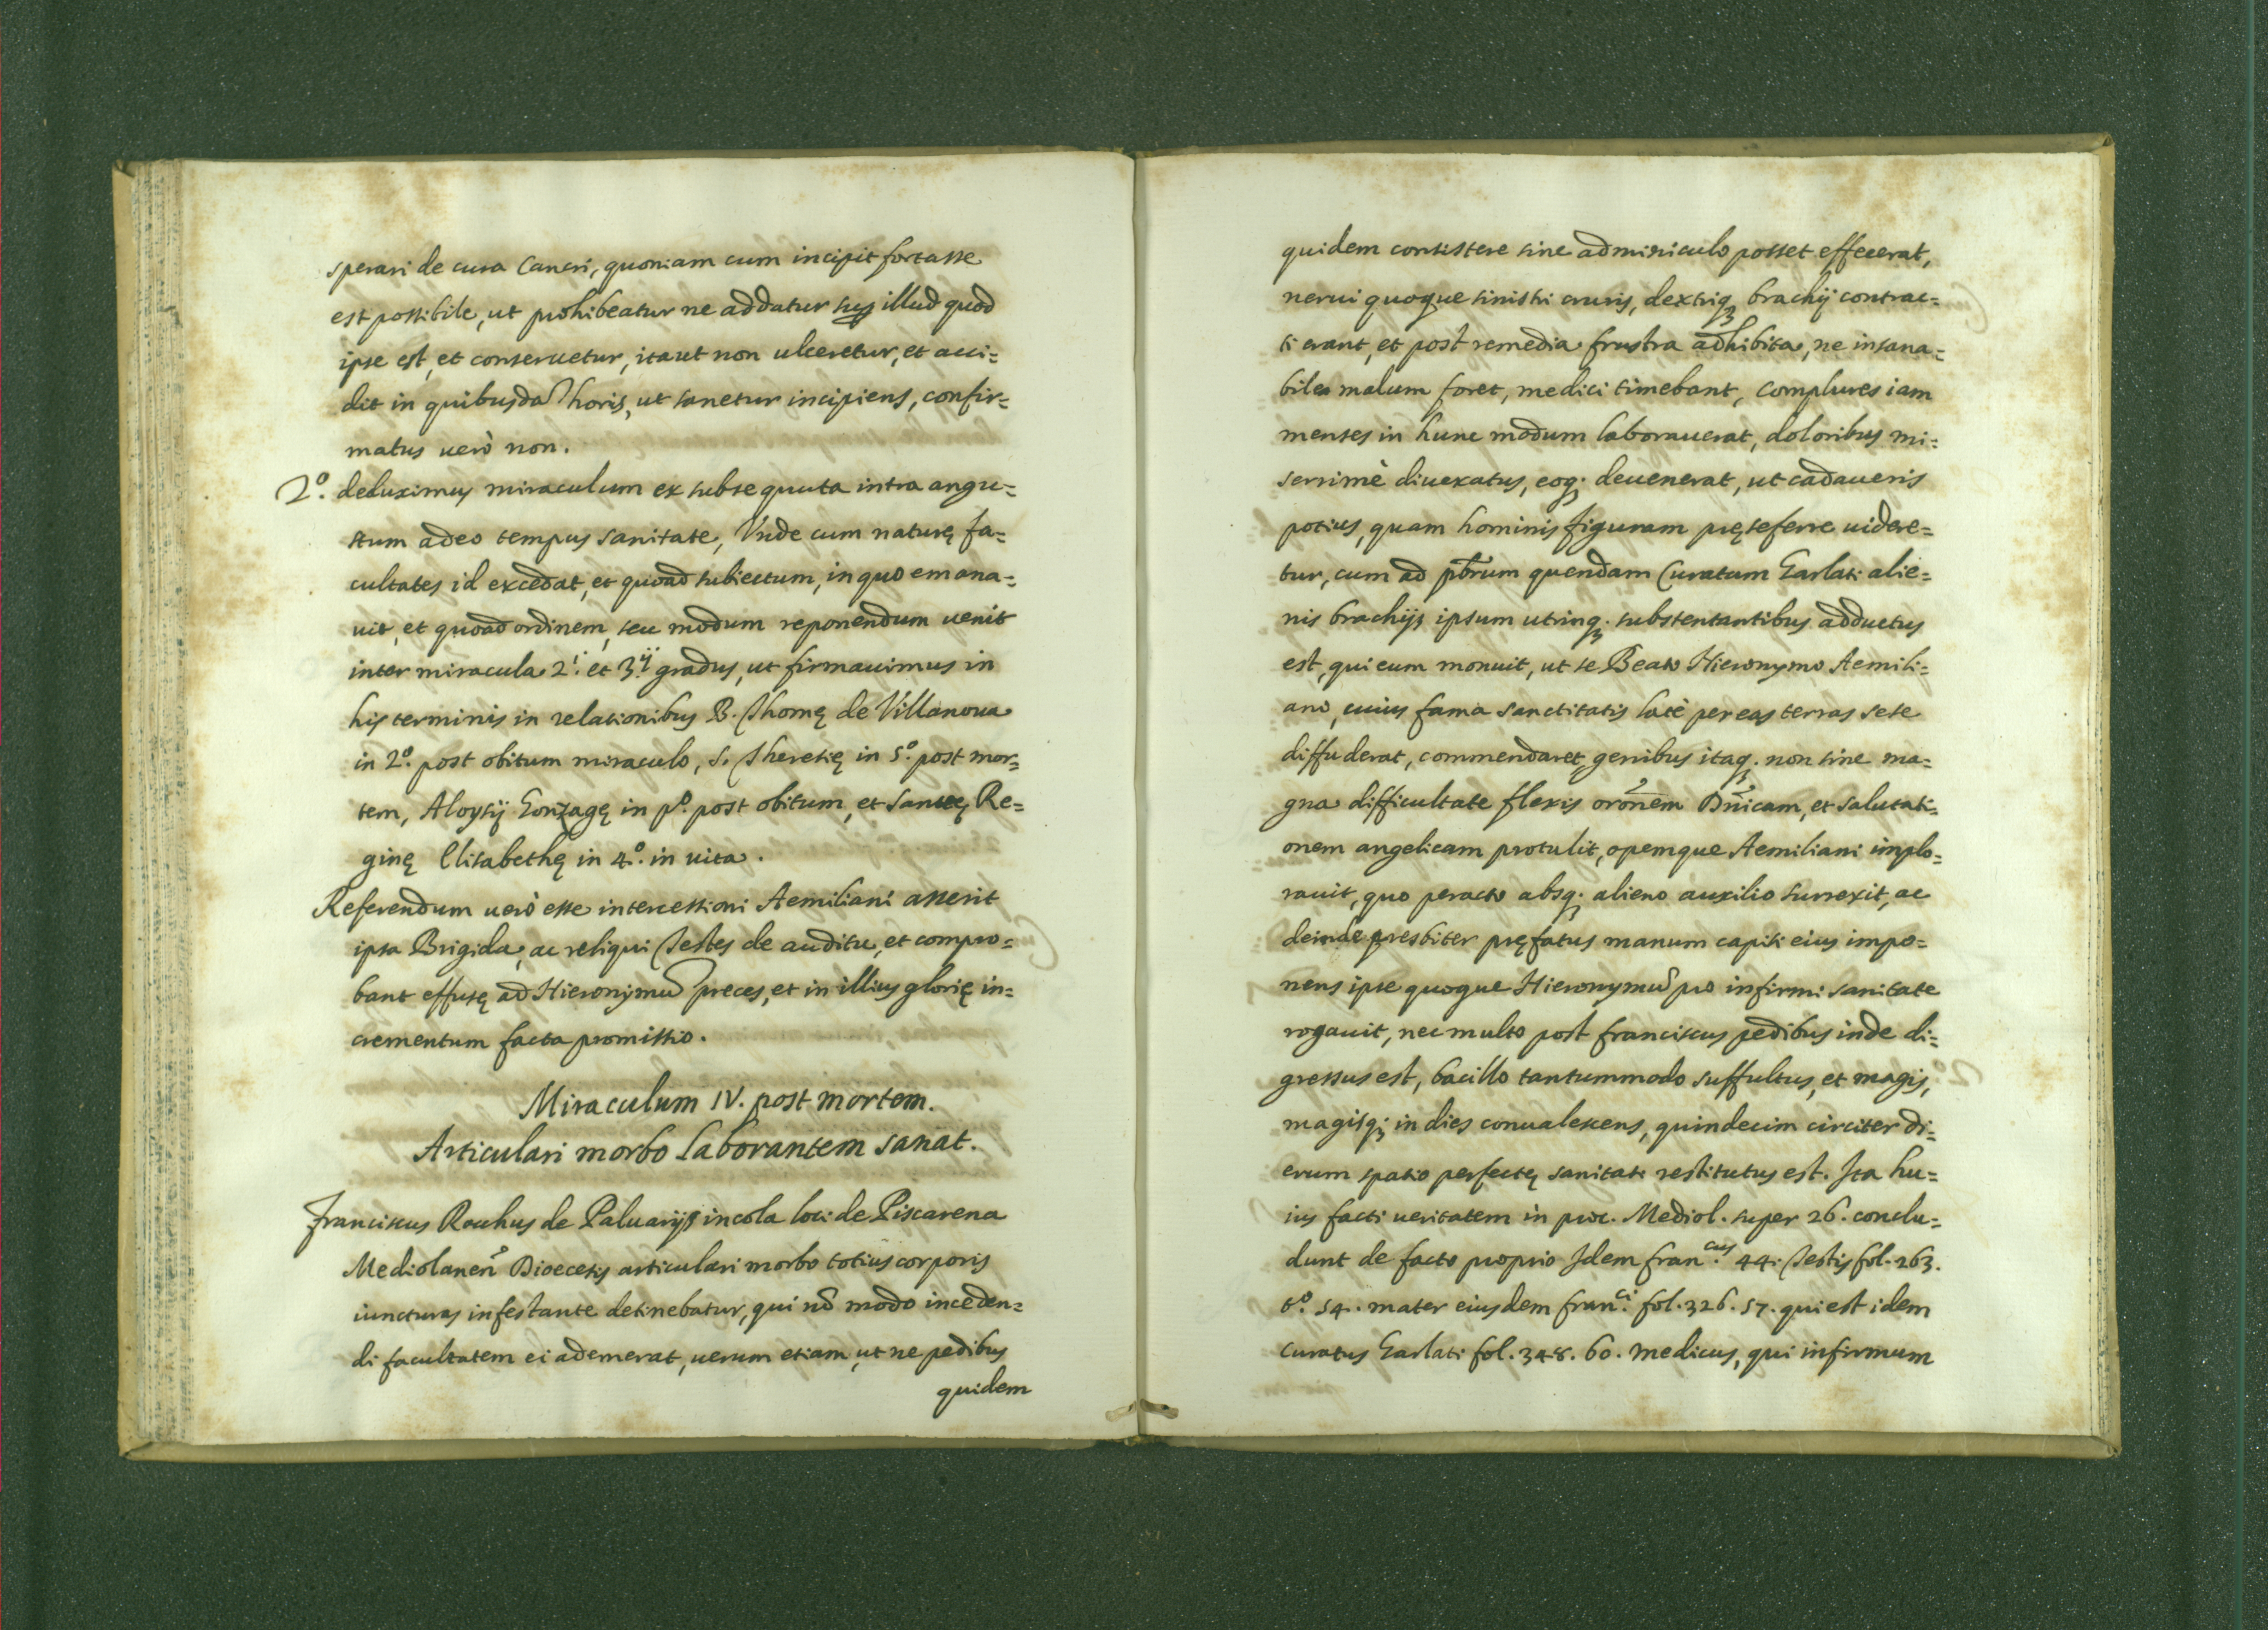 sperari de cura Cancri, quoniam cum incipit fortasse
est possibile, ut prohibeatur ne addatur sup illud quod
ipse est, et conservetur, itaut non ulceretur, et acci=
dit in quibusdã horis, ut sanetur incipiens, confir=
matus uerò non.
2º. deduximus miraculum ex subsequuta intra angu=
stum adeo tempus sanitate, Vnde cum naturę fa=
cultates id excedat, et quoad subiectum, in quo emana=
uit, et quoad ordinem, seu modum reponendum uenit
inter miracula 2.i et 3.ij gradus, ut firmauimus in
his terminis in relationibus B. Thomę de Villanoua
in 2º. post obitum miraculo, S. Theresię in 5º. post mor=
tem, Aloysij Gonzagę in pº. post obitum, et Sanctę Re=
ginę Elisabethę in 4º. in uita.
Referendum uerò esse intercessioni Aemiliani asserit
ipsa Brigida, ac reliqui Testes de auditu, et compro=
bant effusę ad Hieronymũ preces, et in illius glorię in=
crementum facta promissio.
Miraculum IV. post mortem.
Articulari morbo laborantem sanat.
Franciscus Rochus de Paluarijs incola loci de Piscarena
Mediolanen̄ Dioecesis articulari morbo totius corporis
iuncturas infestante detinebatur, qui nõ modo inceden=
di facultatem ei ademerat, uerum etiam, ut ne pedibus
quidem
quidem consistere sine adminiculo posset effecerat,
nerui quoque sinistri cruris, dextriq; brachij contrac=
ti erant, et post remedia frustra adhibita, ne insana=
bile malum foret, medici timebant, complures iam
menses in hunc modum laborauerat, doloribus mi=
serrimè diuexatus, eoq; deuenerat, ut cadaueris
potius, quam hominis figuram pręseferre uidere=
tur, cum ad pb̄rum quendam Curatum Garlati alie=
nis brachijs ipsum utrinq; substentantibus adductus
est, qui eum monuit, ut se Beato Hieronymo Aemili=
ano, cuius fama sanctitatis latè per eas terras sese
diffuderat, commendaret, genibus itaq; non sine ma=
gna difficultate flexis orōnem Dn̄icam, et salutati=
onem angelicam protulit, opemque Aemiliani implo=
rauit, quo peracto absq; alieno auxilio surrexit, ac
deinde presbiter pręfatus manum capiti eius impo=
nens ipse quoque Hieronymũ pro infirmi sanitate
rogauit, nec multo post franciscus pedibus inde di=
gressus est, bacillo tantummodo suffultus, et magis,
magisq; in dies conualescens, quindecim circiter di=
erum spatio perfectę sanitati restitutus est. Ita hu=
ius facti ueritatem in proc. Mediol. super 26. conclu=
dunt de facto proprio Idem fran.cus 44. Testis fol. 263.
tº. 54. mater eiusdem fran.ci fol. 326. 57. qui est idem
curatus Garlati fol. 348. 60. Medicus, qui infirmum